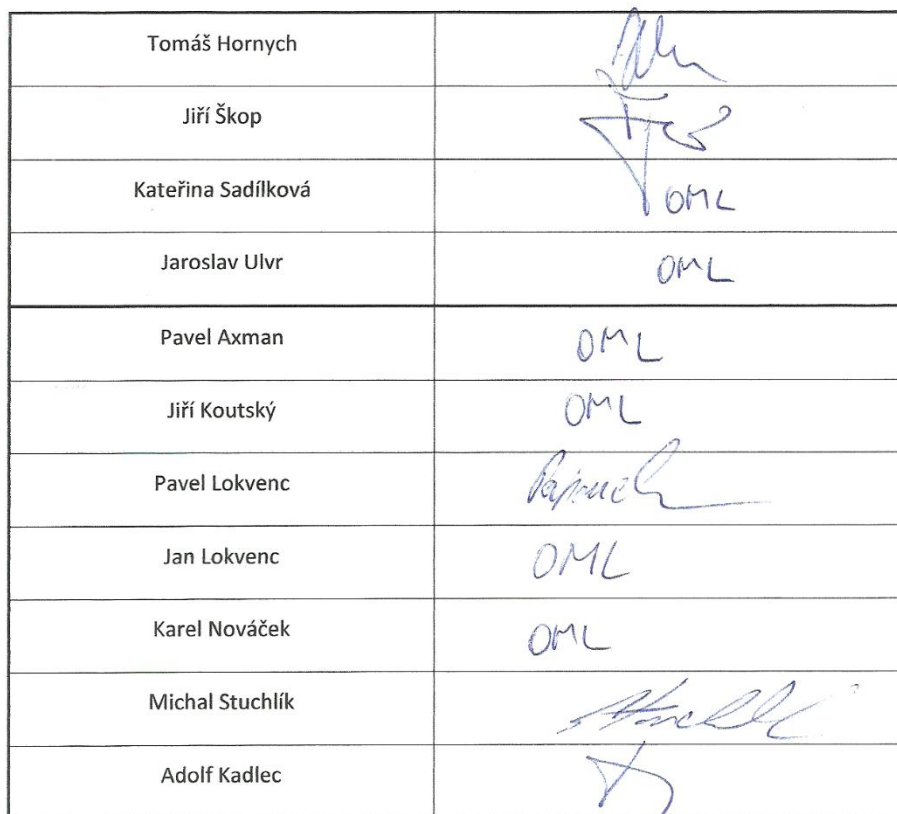 Tomáš Hornych
Jiří Škop
Kateřina Sadílková OML
Jaroslav Ulvr OML
Pavel Axman OML
Jiří Koutský OML
Pavel Lokvenc
Jan Lokvenc OML
Karel Nováček OML
Michal Stuchlík
Adolf Kadlec